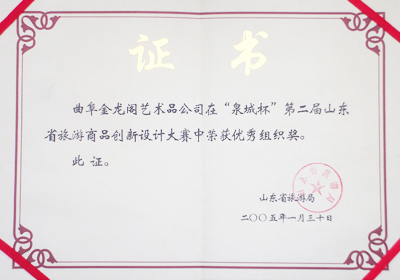 证书
曲阜金龙阁艺术品公司在“泉城杯”第二届山东
省旅游商品创新设计大赛中荣获优秀组织奖。
此证。
山东省旅游局
二〇〇五年一月三十日